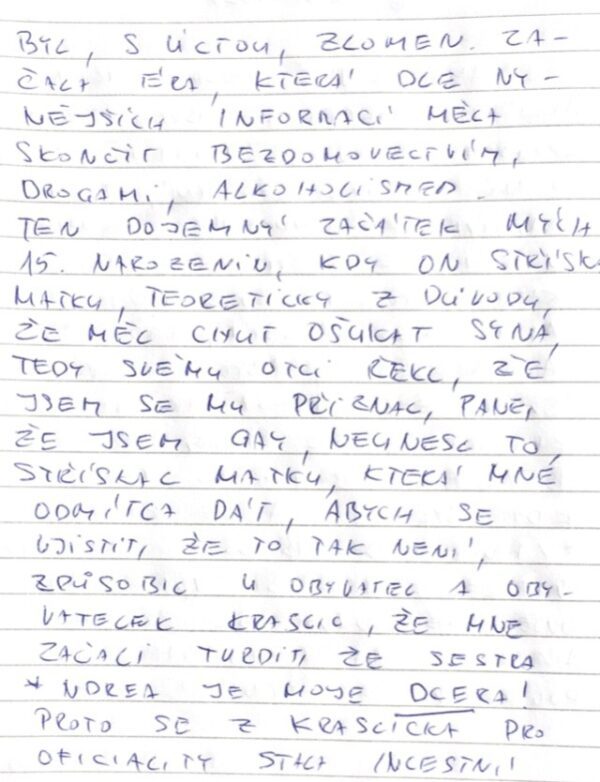 BYL, S ÚCTOU, ZLOMEN. ZA-
ČALA ÉRA, KTERÁ DLE NY-
NĚJŠÍCH INFORMACÍ MĚLA
SKONČIT BEZDOMOVECTVÍM,
DROGAMI, ALKOHOLISMEM.
TEN DOJEMNÝ ZAČÁTEK MÝCH
15. NAROZENIN, KDY ON STŘÍSK
MATKU, TEORETICKY Z DŮVODU,
ŽE MĚL CHUŤ OŠUKAT SYNA,
TEDY SVÉMU OTCI ŘEKL, ŽE
JSEM SE MU PŘIZNAL, PANE,
ŽE JSEM GAY, NEUNESL TO,
STŘÍSKAL MATKU, KTERÁ MNĚ
ODMÍTLA DÁT, ABYCH SE
UJISTIL, ŽE TO TAK NENÍ,
ZPŮSOBIL U OBYVATEL A OBY-
VATELEK KRASLIC, ŽE MNĚ
ZAČALI TVRDIT, ŽE SESTRA
* NOREA JE MOJE DCERA!
PROTO SE Z KRASLIČKA PRO
OFICIALITY STALI INCESTNÍ